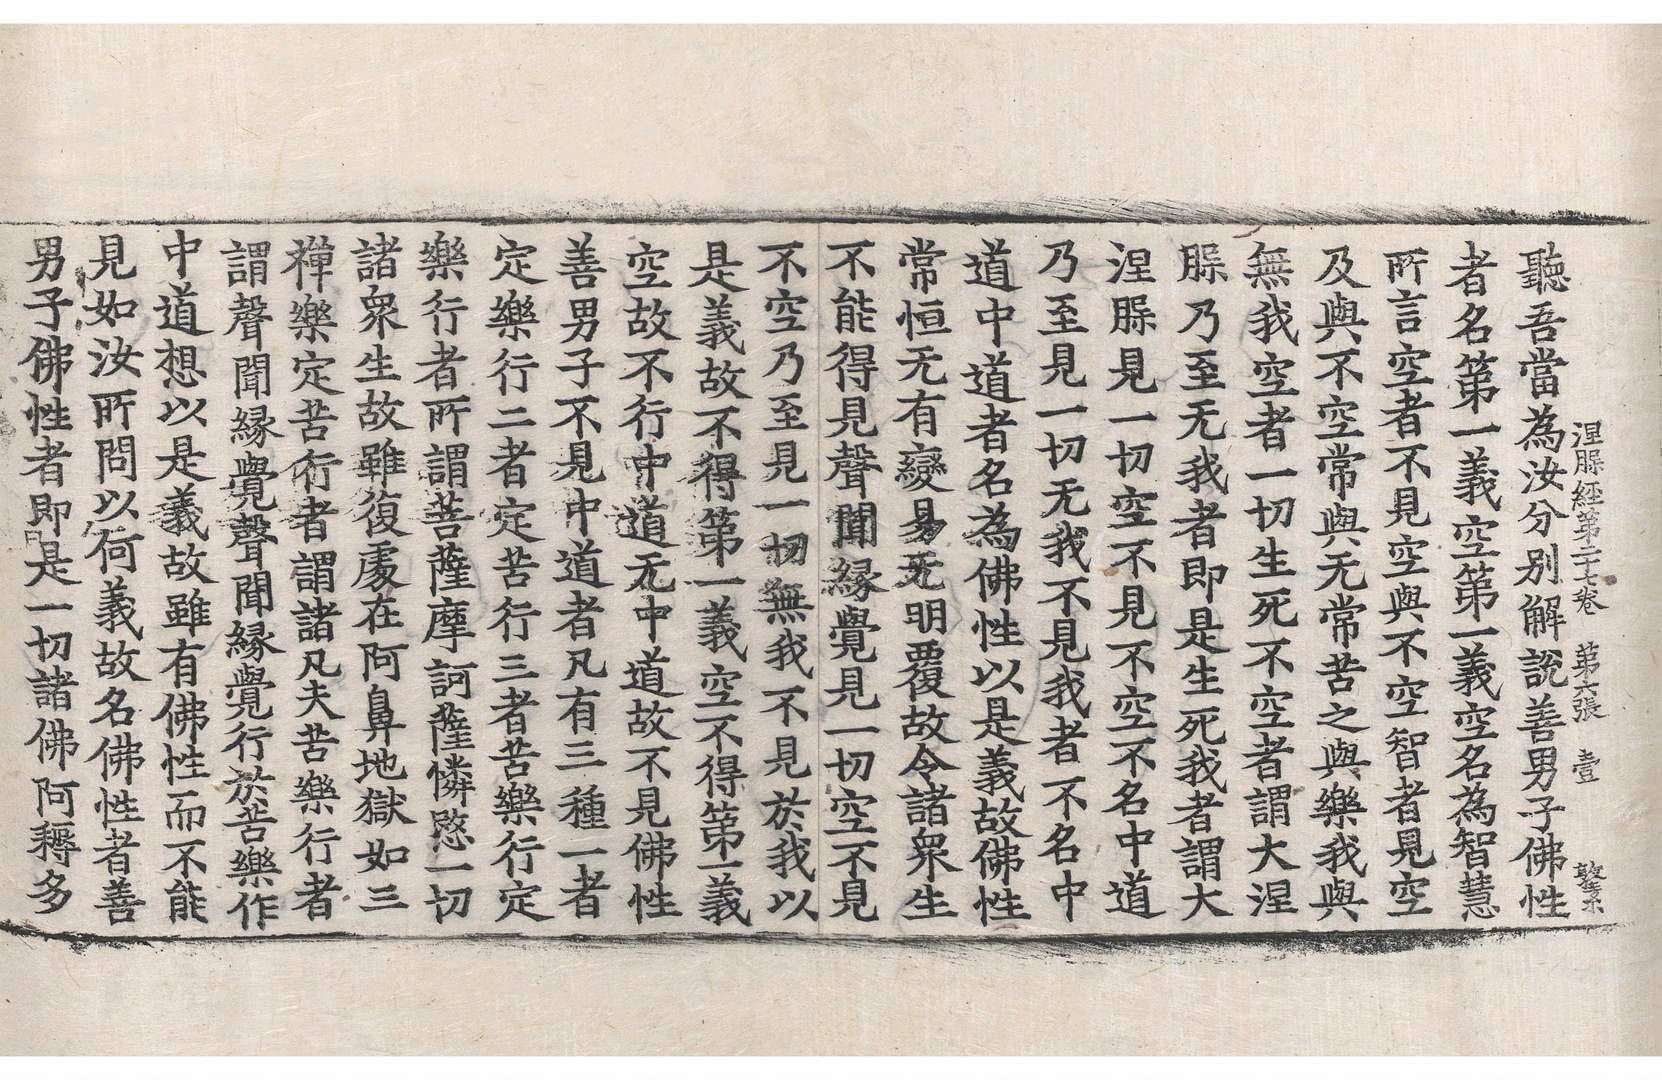 涅槃經第二十七卷　第六張　壹
聽吾當為汝分別解說善男子佛性
者名第一義空第一義空名為智慧
所言空者不見空與不空智者見空
及與不空常與无常苦之與樂我與
無我空者一切生死不空者謂大涅
槃乃至无我者即是生死我者謂大
涅槃見一切空不見不空不名中道
乃至見一切无我不見我者不名中
道中道者名為佛性以是義故佛性
常恒无有變易无明覆故令諸衆生
不能得見聲聞緣覺見一切空不見
不空乃至見一切無我不見於我以
是義故不得第一義空不得第一義
空故不行中道无中道故不見佛性
善男子不見中道者凡有三種一者
定樂行二者定苦行三者苦樂行定
樂行者所謂菩薩摩訶薩憐愍一切
諸衆生故雖復處在阿鼻地獄如三
禪樂定苦行者謂諸凡夫苦樂行者
謂聲聞緣覺聲聞緣覺行於苦樂作
中道想以是義故雖有佛性而不能
見如汝所問以何義故名佛性者善
男子佛性者即是一切諸佛阿耨多